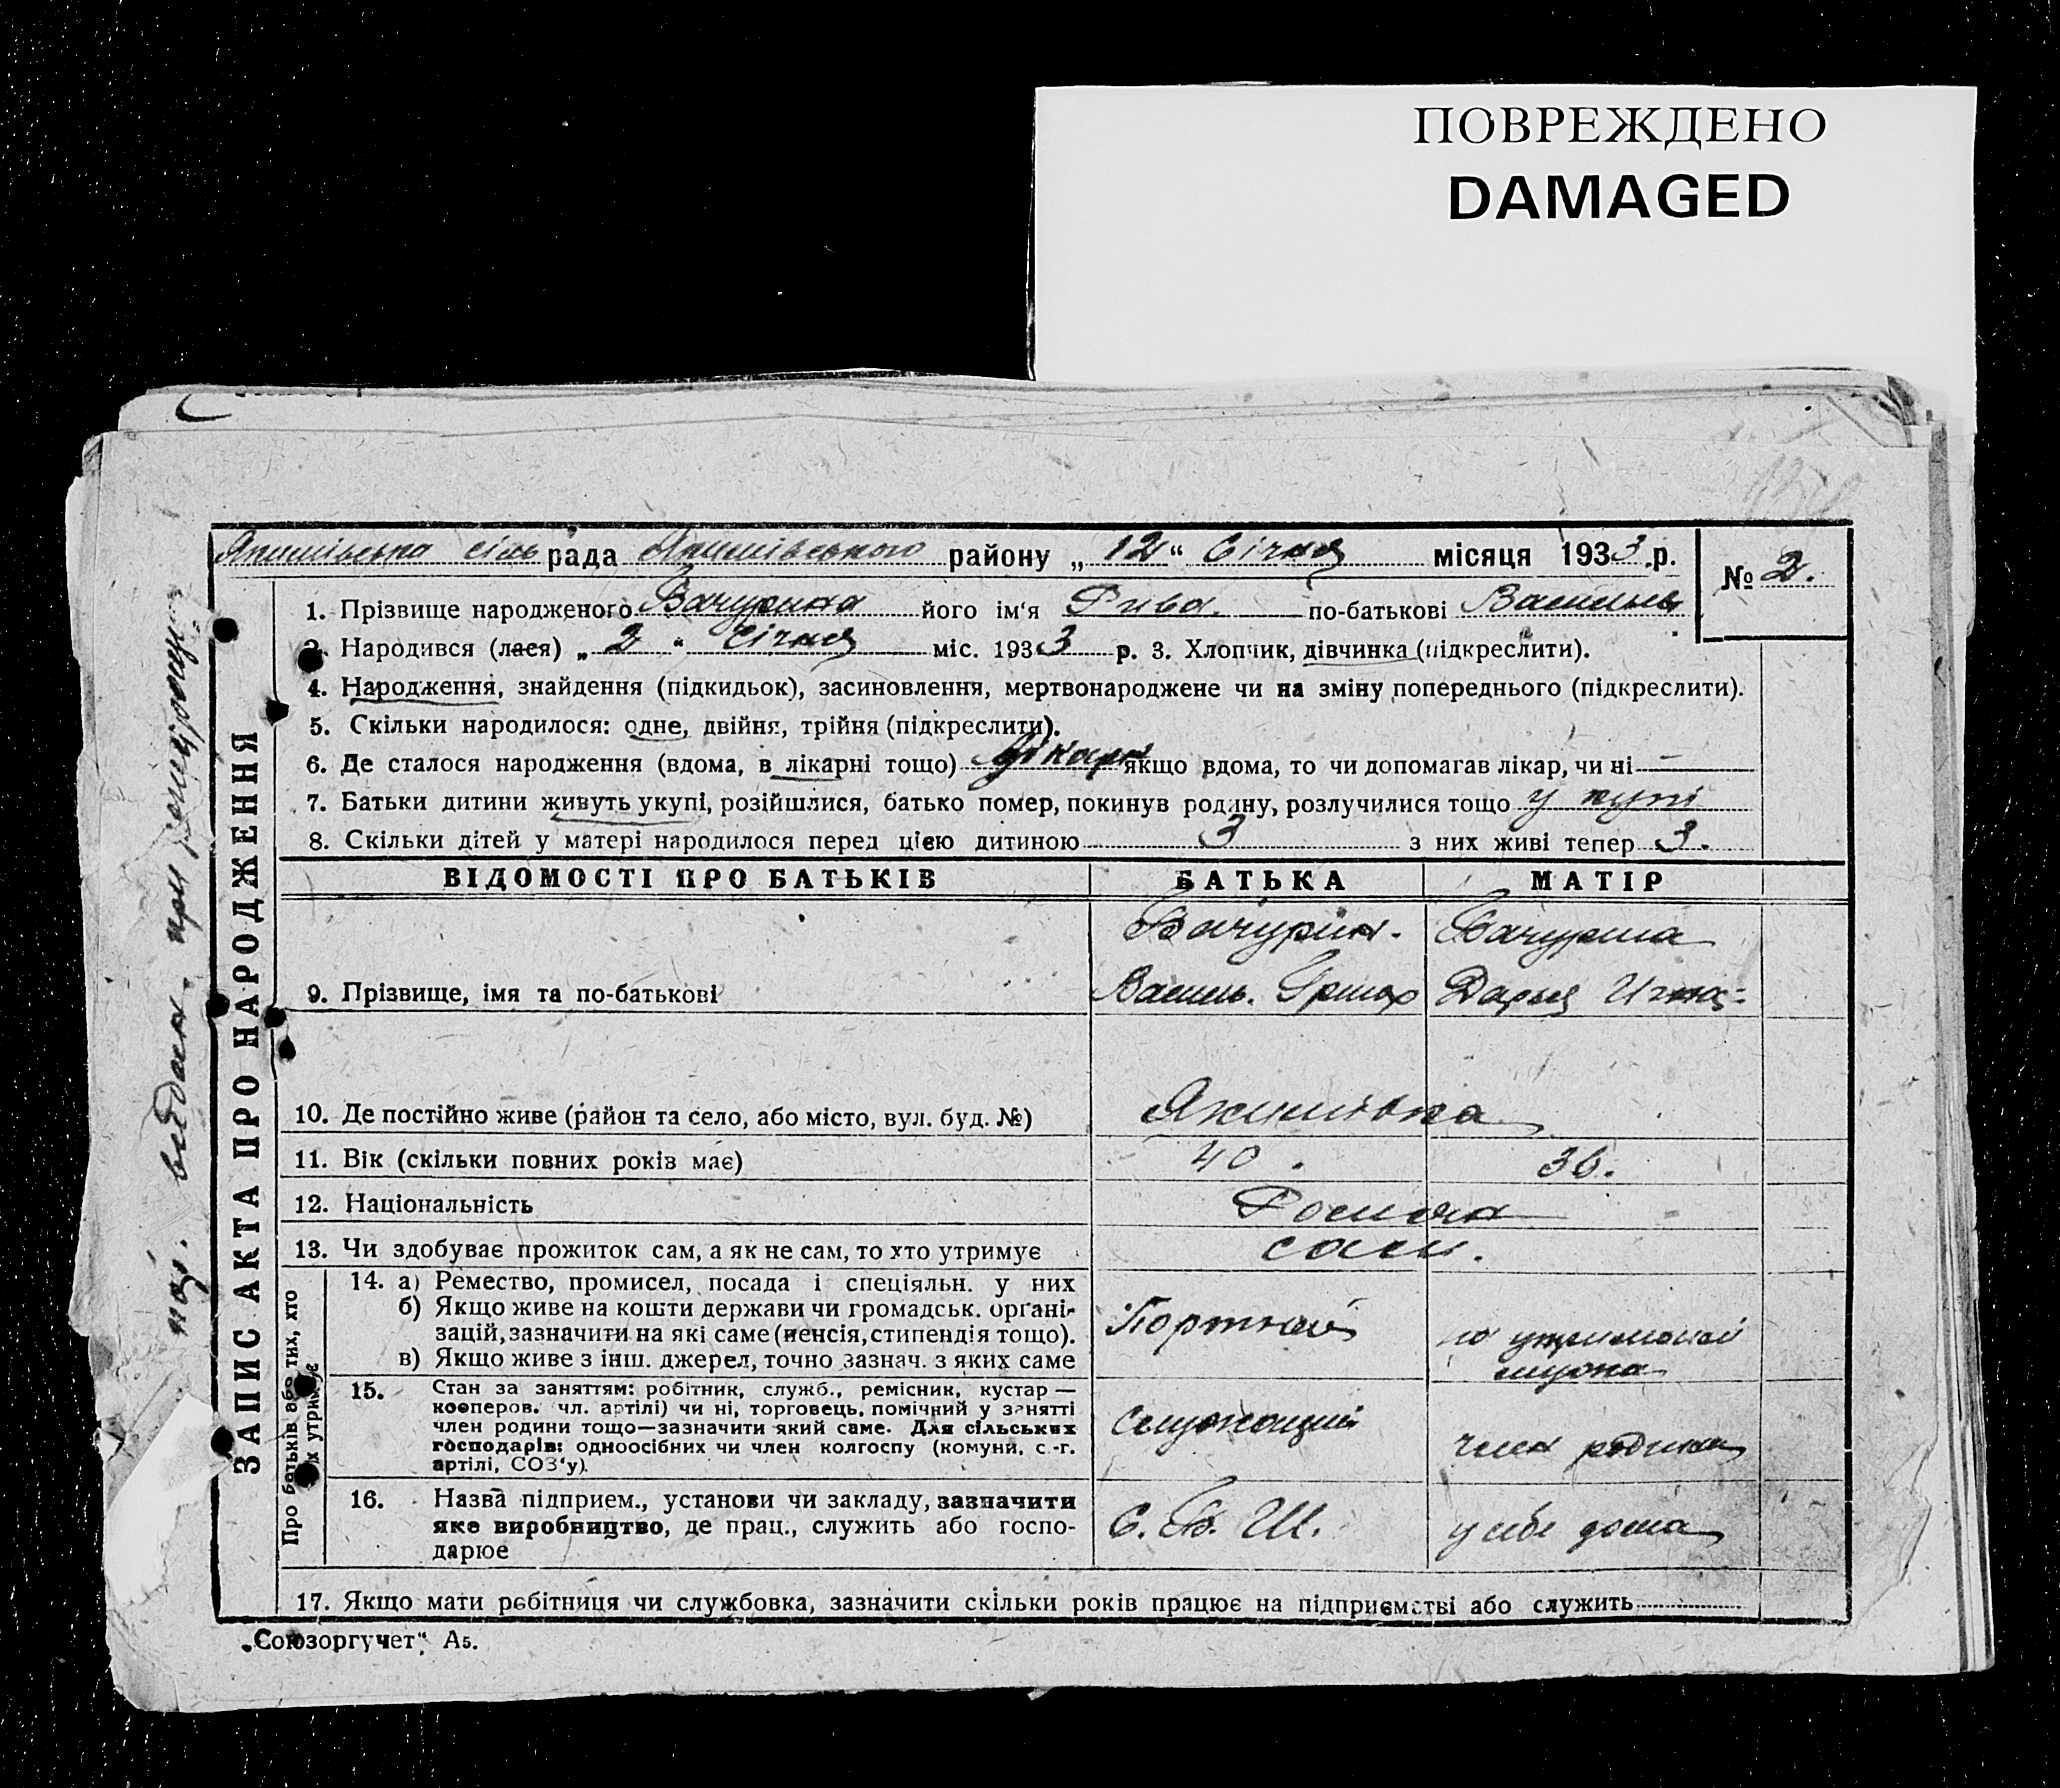 ПОВРЕЖДЕНО
DAMAGED
Якимівська сіль рада Якимівського району „12“ Січня місяця 1933.р.
№ 2.
1. Прізвище народженого Вачурина його ім'я Рива. по-батькові Васильев
2. Народився (лася) „2“ Січня міс. 1933 р. 3. Хлопчик, дівчинка (підкреслити).
4. Народження, знайдення (підкидьок), засиновлення, мертвонароджене чи на зміну попереднього (підкреслити).
5. Скільки народилося: одне, двійня, трійня (підкреслити).
6. Де сталося народження (вдома, в лікарні тощо) якщо вдома, то чи допомагав лікар, чи ні —
7. Батьки дитини живуть укупі, розійшлися, батько помер, покинув родину, розлучилися тощо у купі
8. Скільки дітей у матері народилося перед цією дитиною 3 з них живі тепер 3.
ВІДОМОСТІ ПРО БАТЬКІВ БАТЬКА МАТІР
Вачурин. Вачурина
9. Прізвище, імя та по-батькові Василь. Григор Дарья Игна-
10. Де постійно живе (район та село, або місто, вул. буд. №) Якимівка
11. Вік (скільки повних років має) 40. 36.
12. Національність
13. Чи здобуває прожиток сам, а як не сам, то хто утримує сам.
14. а) Ремество, промисел, посада і спеціяльн. у них
б) Якщо живе на кошти держави чи громадськ. органі-
зацій, зазначити на які саме (пенсія, стипендія тощо).
в) Якщо живе з інш. джерел, точно зазнач. з яких саме
Портной на утриманий
мужа
15. Стан за заняттям: робітник, служб., ремісник, кустар —
кооперов. чл. артілі) чи ні, торговець, помічний у занятті
член родини тощо—зазначити який саме. Для сільських
господарів: одноосібних чи член колгоспу (комуни, с.-г.
артілі, СОЗ'у).
Служащий член родини
16. Назва підприєм., установи чи закладу, зазначити
яке виробництво, де прац., служить або госпо-
дарює
С. П. Ш. у себе дома
17. Якщо мати робітниця чи службовка, зазначити скільки років працює на підприємстві або служить
„Союзоргучет“ А5.
ЗАПИС АКТА ПРО НАРОДЖЕННЯ
Про батьків або тих, хто
їх утримує
видан. при